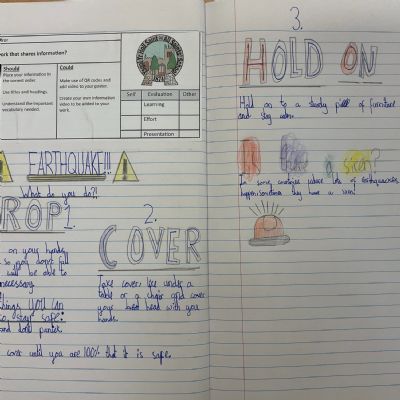 work that shares information?
Should
Could
Place your information in the correct order.
Use titles and headings.
Understand the important vocabulary needed.
Make use of QR codes and add video to your poster.
Create your own information video to be added to your work.
Self
Evaluation
Other
Learning
Effort
Presentation
EARTHQUAKE!!!
What do you do?!
DROP 1.
on your hands
so you don't fall
will be able to
necessary.
things you can
stay safe:
and don't panick.
2.
COVER
Take cover, like under a
table or a chair and cover
your head with you
hands.
cover until you are 100% that it is safe.
3.
HOLD ON
Hold on to a sturdy of furniture
and stay calm.
siren?
In some countries where lots of earthquakes
happen sometimes they have a siren!